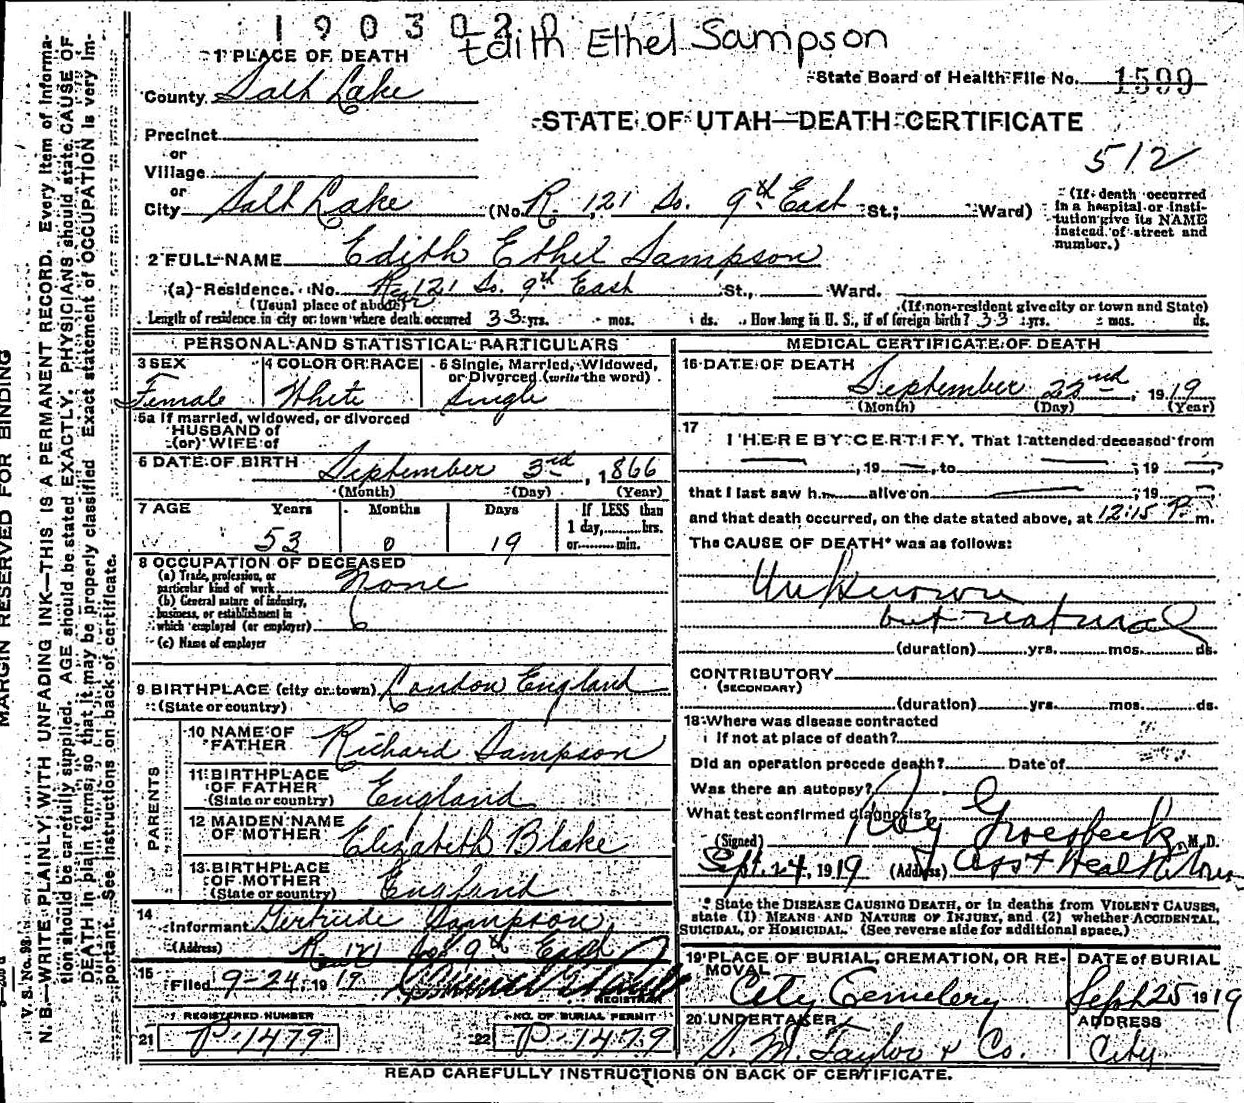 190302
Edith Ethel Sampson
1 PLACE OF DEATH
State Board of Health File No. 1599
County Salt Lake
STATE OF UTAH—DEATH CERTIFICATE
Precinct
512
or
Village
or
City Salt Lake (No. R. 121 So. 9th East St.; Ward)
(If death occurred in a hospital or institution give its NAME instead of street and number.)
2 FULL NAME Edith Ethel Sampson
(a) Residence. No. 121 So. 9th East St., Ward.
(Usual place of abode) (If non-resident give city or town and State)
Length of residence in city or town where death occurred 33 yrs. mos. ds. How long in U. S., if of foreign birth? 33 yrs. mos. ds.
PERSONAL AND STATISTICAL PARTICULARS
3 SEX
Female
4 COLOR OR RACE
White
5 Single, Married, Widowed,
or Divorced (write the word)
Single
5a If married, widowed, or divorced
HUSBAND of
(or) WIFE of
6 DATE OF BIRTH September 3rd, 1866
(Month) (Day) (Year)
7 AGE Years Months Days If LESS than
1 day, hrs.
53 0 19 or min.
8 OCCUPATION OF DECEASED
(a) Trade, profession, or
particular kind of work None
(b) General nature of industry,
business, or establishment in
which employed (or employer)
(c) Name of employer
9 BIRTHPLACE (city or town) London England
(State or country)
PARENTS
10 NAME OF
FATHER Richard Sampson
11 BIRTHPLACE
OF FATHER
(State or country) England
12 MAIDEN NAME
OF MOTHER Elizabeth Blake
13 BIRTHPLACE
OF MOTHER
(State or country) England
14
Informant Gertrude Sampson
(Address) 121 So. 9th East
15
Filed 9-24, 1919
REGISTRAR
REGISTERED NUMBER
21 P-1479
NO. OF BURIAL PERMIT
22 P-1479
MEDICAL CERTIFICATE OF DEATH
16 DATE OF DEATH
September 22nd, 1919
(Month) (Day) (Year)
17
I HEREBY CERTIFY, That I attended deceased from
, 19 , to , 19 ,
that I last saw h alive on , 19
and that death occurred, on the date stated above, at 12:15 P. m.
The CAUSE OF DEATH* was as follows:
Unknown
but natural
(duration) yrs. mos. ds.
CONTRIBUTORY
(SECONDARY)
(duration) yrs. mos. ds.
18 Where was disease contracted
If not at place of death?
Did an operation precede death? Date of
Was there an autopsy?
What test confirmed diagnosis?
(Signed) Groesbeck, M. D.
Sept. 24, 1919 (Address) Asst Health
* State the DISEASE CAUSING DEATH, or in deaths from VIOLENT CAUSES,
state (1) MEANS AND NATURE OF INJURY, and (2) whether ACCIDENTAL,
SUICIDAL, or HOMICIDAL. (See reverse side for additional space.)
19 PLACE OF BURIAL, CREMATION, OR RE-
MOVAL
City Cemetery
DATE of BURIAL
Sept 25 1919
20 UNDERTAKER
S. M. Taylor & Co.
ADDRESS
City
READ CAREFULLY INSTRUCTIONS ON BACK OF CERTIFICATE.
MARGIN RESERVED FOR BINDING
V. S. No. 98
N. B.—WRITE PLAINLY, WITH UNFADING INK—THIS IS A PERMANENT RECORD. Every item of informa-
tion should be carefully supplied. AGE should be stated EXACTLY. PHYSICIANS should state CAUSE OF
DEATH in plain terms, so that it may be properly classified. Exact statement of OCCUPATION is very im-
portant. See instructions on back of certificate.